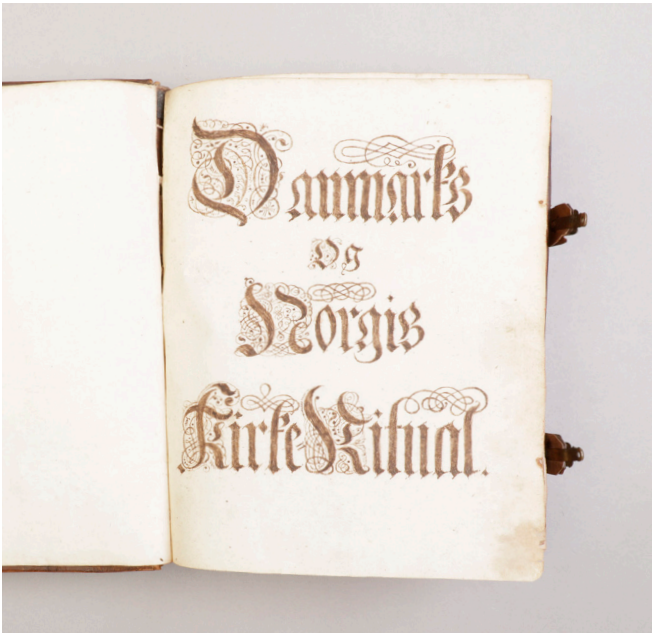 Danmarks
Og
Norgis
Kirke Ritual.